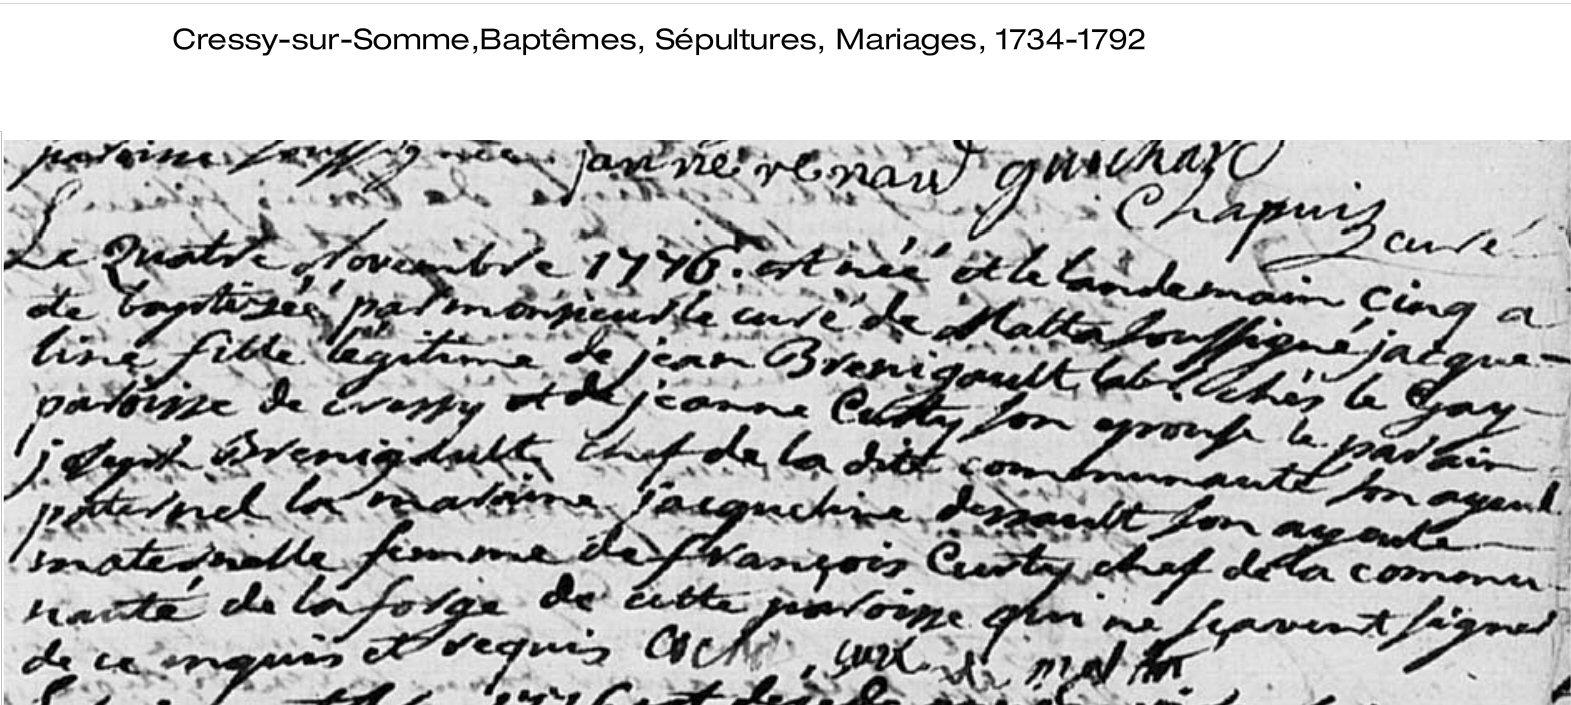 Cressy-sur-Somme,Baptêmes, Sépultures, Mariages, 1734-1792
janne renaud guichard
Chapuis
curé
Le Quatre Novembre 1776. est née et le landemain cinq a
ete baptisée par monsieur le curé de Malta soussigné jacque-
line fille legitime de jean Brenigault lab. chés le Gay
paroisse de cressy et de jeanne Custy son epouse le parain
joseph Brenigault chef de la dite communauté son ayeul
paternel la maraine jacqueline dessault son ayeule
maternelle femme de françois Custy chef de la commu-
nauté de la forge de cette paroisse qui ne sçavent signer
de ce enquis et requis